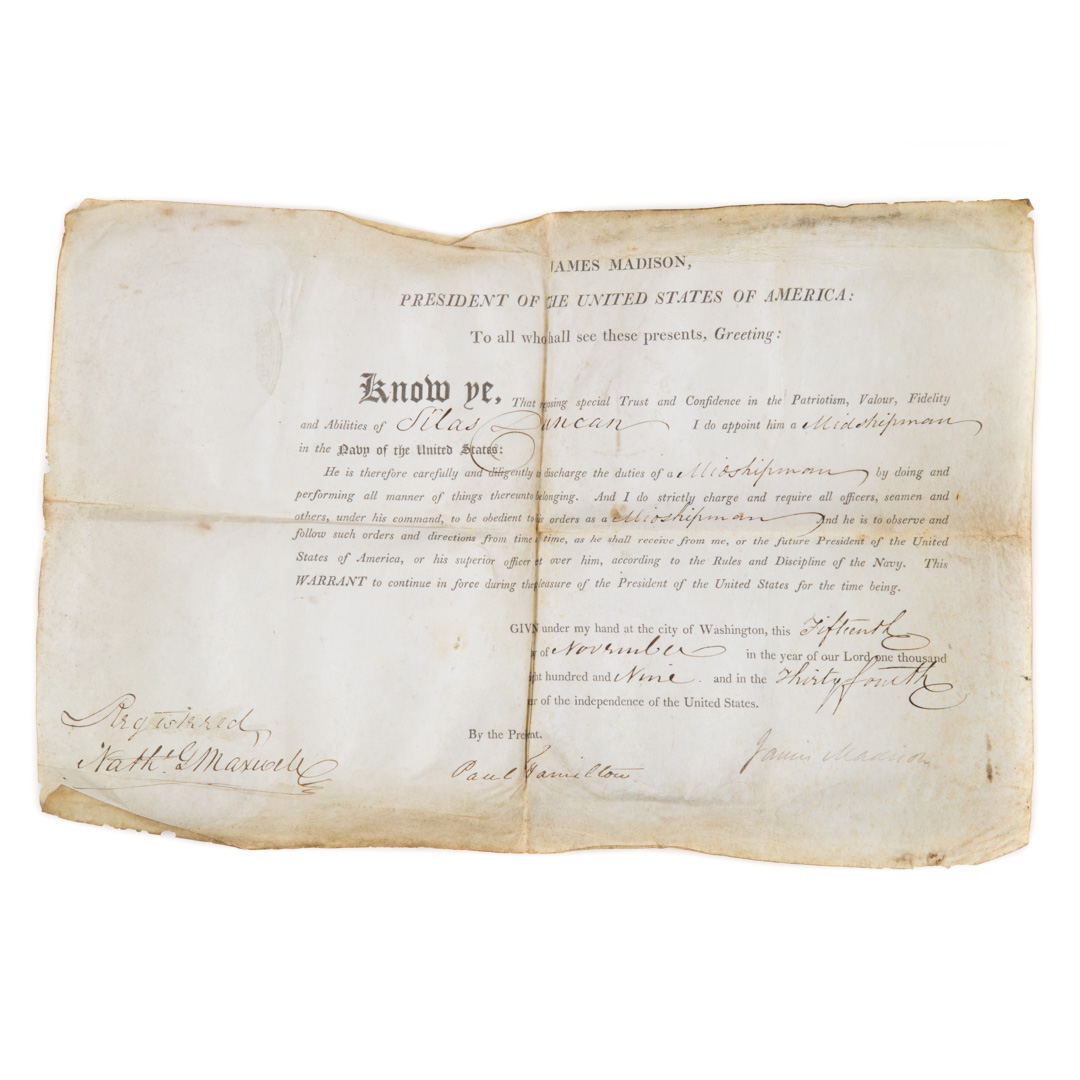 JAMES MADISON,
PRESIDENT OF THE UNITED STATES OF AMERICA:
To all who hall see these presents, Greeting:
Know ye, That reposing special Trust and Confidence in the Patriotism, Valour, Fidelity
and Abilities of Silas Duncan I do appoint him a Midshipman
in the Navy of the United States:
He is therefore carefully and diligently discharge the duties of a Midshipman by doing and
performing all manner of things thereunto belonging. And I do strictly charge and require all officers, seamen and
others, under his command, to be obedient to his orders as a Midshipman And he is to observe and
follow such orders and directions from time time, as he shall receive from me, or the future President of the United
States of America, or his superior officer set over him, according to the Rules and Discipline of the Navy. This
WARRANT to continue in force during the pleasure of the President of the United States for the time being.
GIVN under my hand at the city of Washington, this Fifteenth
of November in the year of our Lord one thousand
ght hundred and Nine. and in the Thirty fourth
of the independence of the United States.
By the Preent.
Registered
Nathl. G Maxwell
Paul Hamilton
James Madison